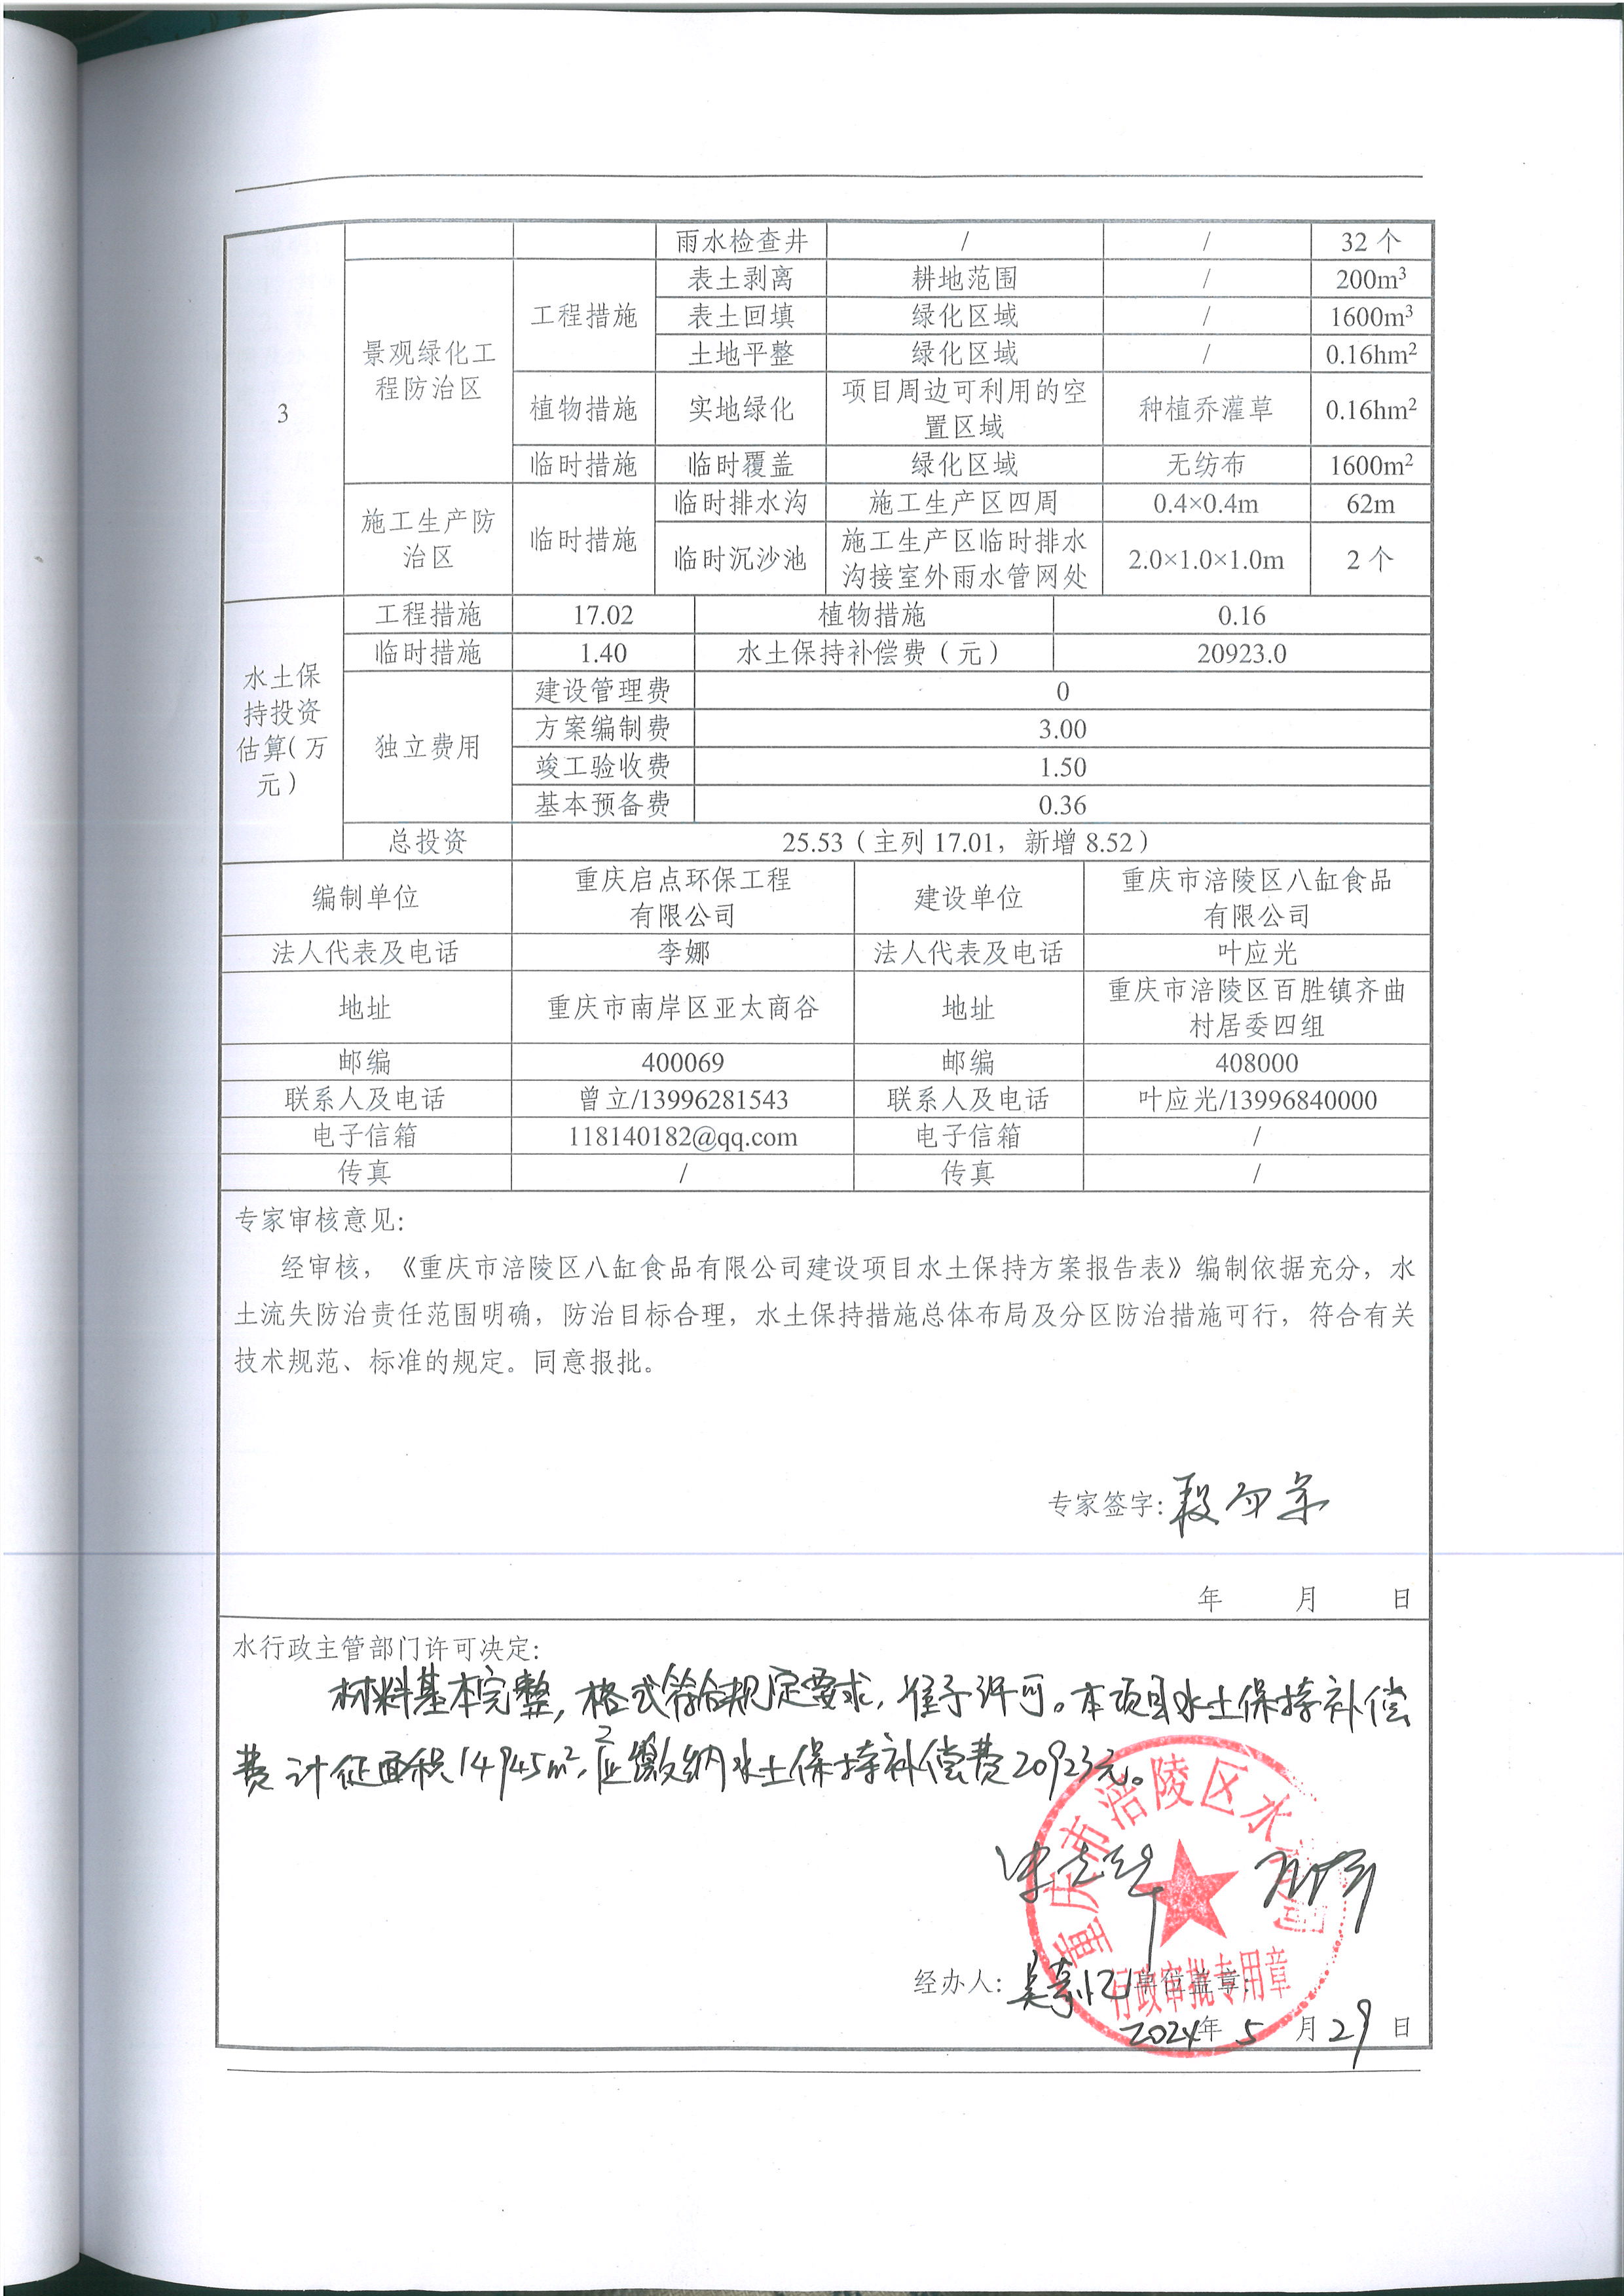 雨水检查井 / / 32 个
3 景观绿化工程防治区 工程措施 表土剥离 耕地范围 / 200m³
表土回填 绿化区域 / 1600m³
土地平整 绿化区域 / 0.16hm²
植物措施 实地绿化 项目周边可利用的空置区域 种植乔灌草 0.16hm²
临时措施 临时覆盖 绿化区域 无纺布 1600m²
施工生产防治区 临时措施 临时排水沟 施工生产区四周 0.4×0.4m 62m
临时沉沙池 施工生产区临时排水沟接室外雨水管网处 2.0×1.0×1.0m 2 个
水土保持投资估算（万元） 工程措施 17.02 植物措施 0.16
临时措施 1.40 水土保持补偿费（元） 20923.0
独立费用 建设管理费 0
方案编制费 3.00
竣工验收费 1.50
基本预备费 0.36
总投资 25.53（主列 17.01，新增 8.52）
编制单位 重庆启点环保工程有限公司 建设单位 重庆市涪陵区八缸食品有限公司
法人代表及电话 李娜 法人代表及电话 叶应光
地址 重庆市南岸区亚太商谷 地址 重庆市涪陵区百胜镇齐曲村居委四组
邮编 400069 邮编 408000
联系人及电话 曾立/13996281543 联系人及电话 叶应光/13996840000
电子信箱 118140182@qq.com 电子信箱 /
传真 / 传真 /
专家审核意见：
经审核，《重庆市涪陵区八缸食品有限公司建设项目水土保持方案报告表》编制依据充分，水
土流失防治责任范围明确，防治目标合理，水土保持措施总体布局及分区防治措施可行，符合有关
技术规范、标准的规定。同意报批。
专家签字：
年 月 日
水行政主管部门许可决定：
材料基本完整，格式符合规定要求，准予许可。本项目水土保持补偿
费计征面积14945m²，应缴纳水土保持补偿费20923元。
重庆市涪陵区水利局
行政审批专用章
经办人： 单位盖章：
2024年 5 月 29 日